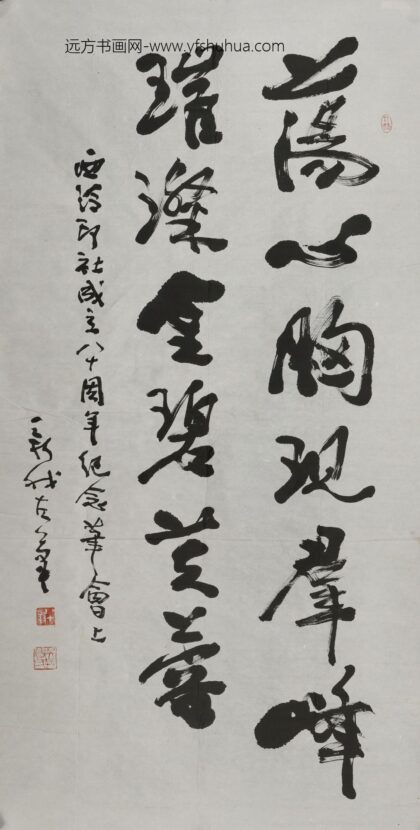 远方书画网-www.yfshuhua.com
蕩心胸现羣峰
璀璨金碧芙蓉
西泠印社成立八十周年纪念筆會上
新我左筆